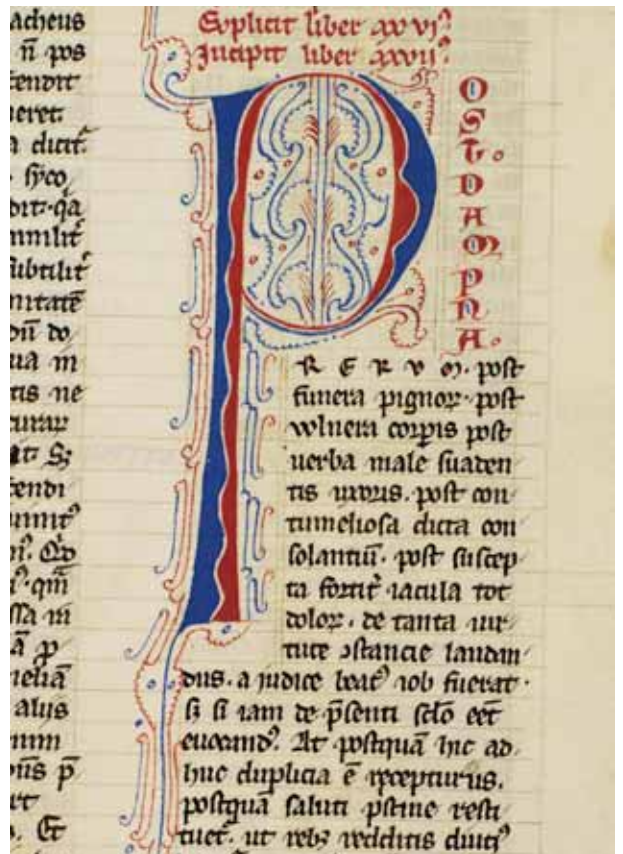 acheus
n̄ pos
tendit
ueret.
a dicit᷑
syco
dit᷑ q̄a
militᷣ
subtilit᷑
nitatē
dū do
ua in
tis ne
curar
at S;
tendi
uinit᷒
Qd̄
qm̄
ssa in
ā ꝑ
meliā
alus
nim
n̄s p̄
rt
Et
Explicit liber xxvi᷒
Incipit liber xxvii᷒
P
O
S
T.
D
A
M
P
N
A.
R E R V M. post
funera pignoꝝ. post
wlnera corꝑis post
uerba male suaden
tis uxoris. post con
tumeliosa dicta con
solantiū. post suscep
ta fortit᷑ iacula tot
doloꝝ. de tanta uir
tute ↄstancie laudan
dus. a iudice beat᷒ iob fuerat.
s; si iam de p̄senti sclō eēt
euocand᷒. At postquā hic ad
huc duplicia ē recepturus.
postquā saluti pstine resti
tuet᷑. ut reb; redditis diuti᷒